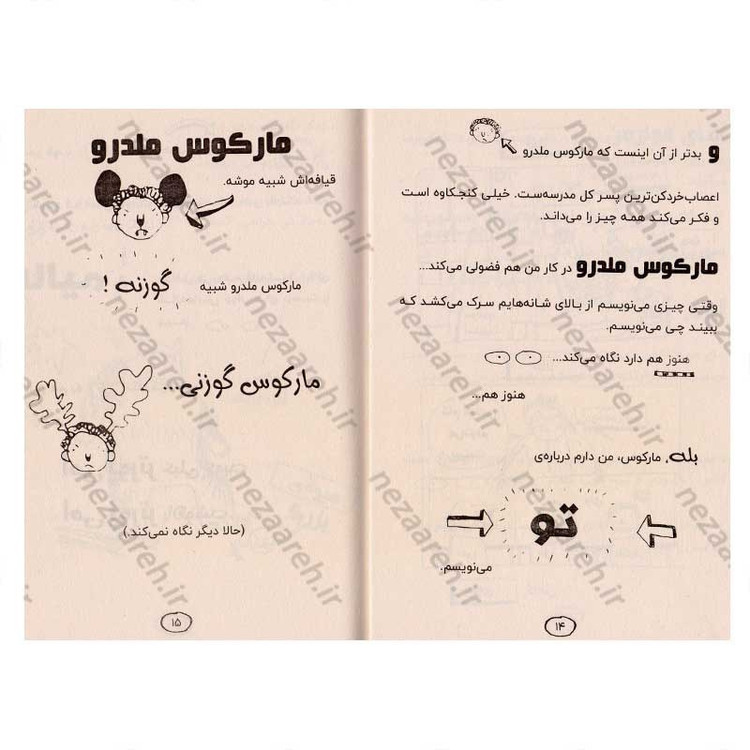 و بدتر از آن اینست که مارکوس ملدرو
اعصاب‌خردکن‌ترین پسر کل مدرسه‌ست. خیلی کنجکاوه است
و فکر می‌کند همه چیز را می‌داند.
مارکوس ملدرو در کار من هم فضولی می‌کند...
وقتی چیزی می‌نویسم از بالای شانه‌هایم سرک می‌کشد که
ببیند چی می‌نویسم.
هنوز هم دارد نگاه می‌کند...
هنوز هم...
بله، مارکوس، من دارم درباره‌ی
تو
می‌نویسم.
۱۴
مارکوس ملدرو
قیافه‌اش شبیه موشه.
مارکوس ملدرو شبیه گوزنه !
مارکوس گوزنی...
(حالا دیگر نگاه نمی‌کند.)
۱۵
nezaareh.ir
nezaareh.ir
nezaareh.ir
nezaareh.ir
nezaareh.ir
nezaareh.ir
nezaareh.ir
nezaareh.ir
nezaareh.ir